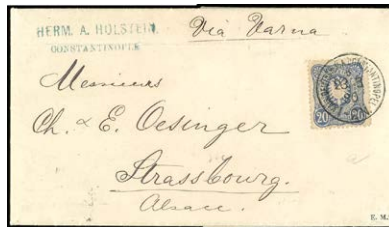 HERM. A. HOLSTEIN.
CONSTANTINOPLE
Via Varna
Messieurs
Ch. & E. Oesinger
Strassbourg.
Alsace.
20 20
E. M.